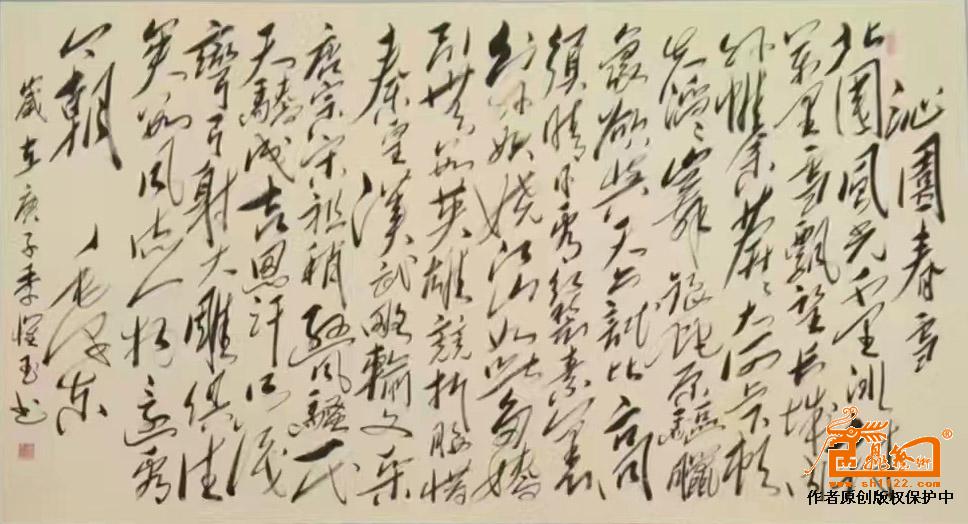 沁園春雪
北國風光千里冰封
萬里雪飄望長城内
外惟餘莽莽大河上下頓
失滔滔山舞銀蛇原馳臘
象欲與天公試比高
須晴日看紅裝素裹
分外妖嬈江山如此多嬌
引無數英雄競折腰惜
秦皇漢武略輸文采
唐宗宋祖稍遜風騷一代
天驕成吉思汗只識
彎弓射大雕俱往
矣數風流人物還看
今朝
毛澤東
歲在庚子季 玉书
www.sh1122.com
作者原创版权保护中